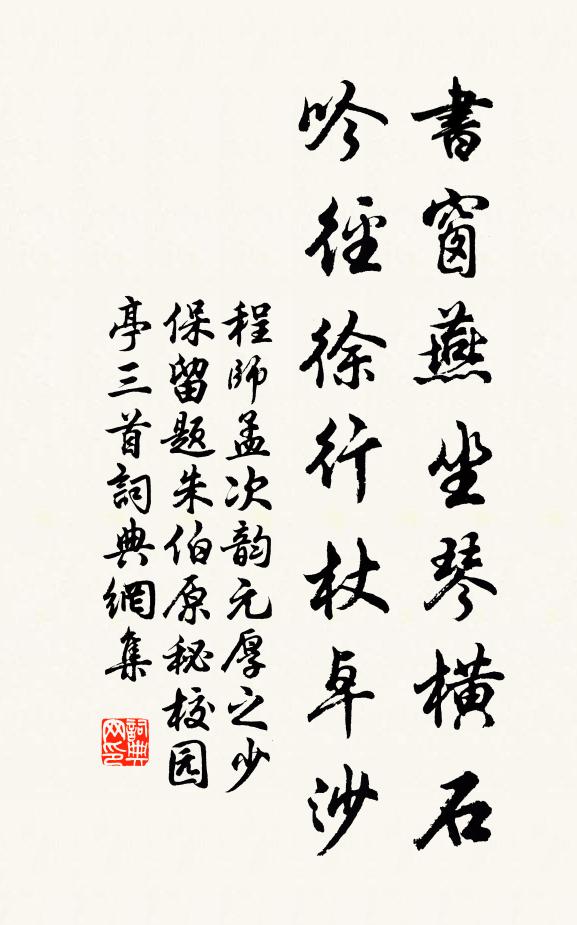 書窗燕坐琴橫石
吟徑徐行杖卓沙
程師孟次韵元厚之少
保留題朱伯原秘校园
亭三首詞典網集
詞典網印